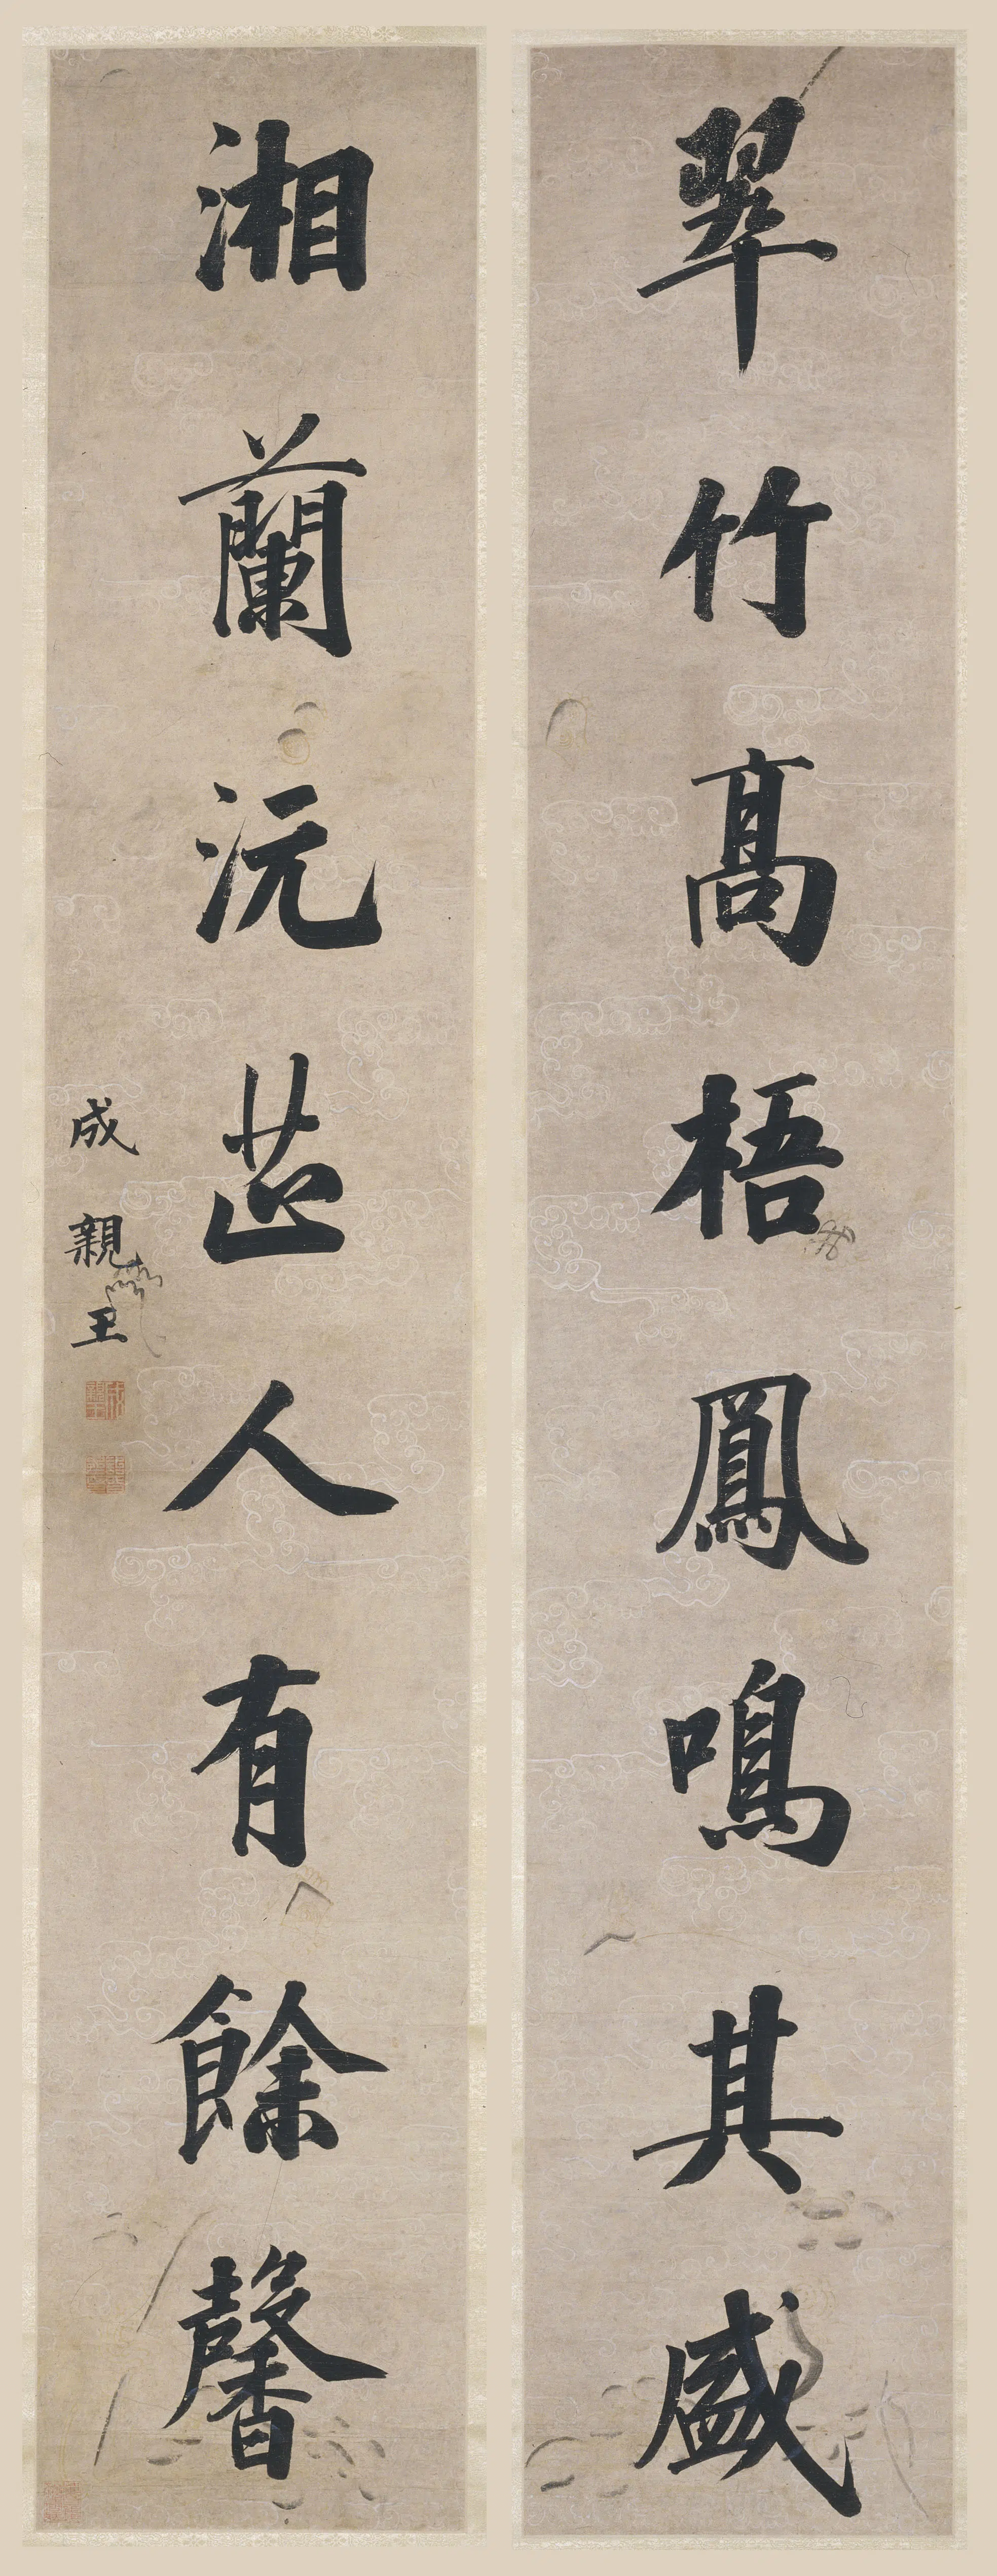 翠竹高梧鳳鳴其盛
湘蘭沅芷人有餘馨
成親王